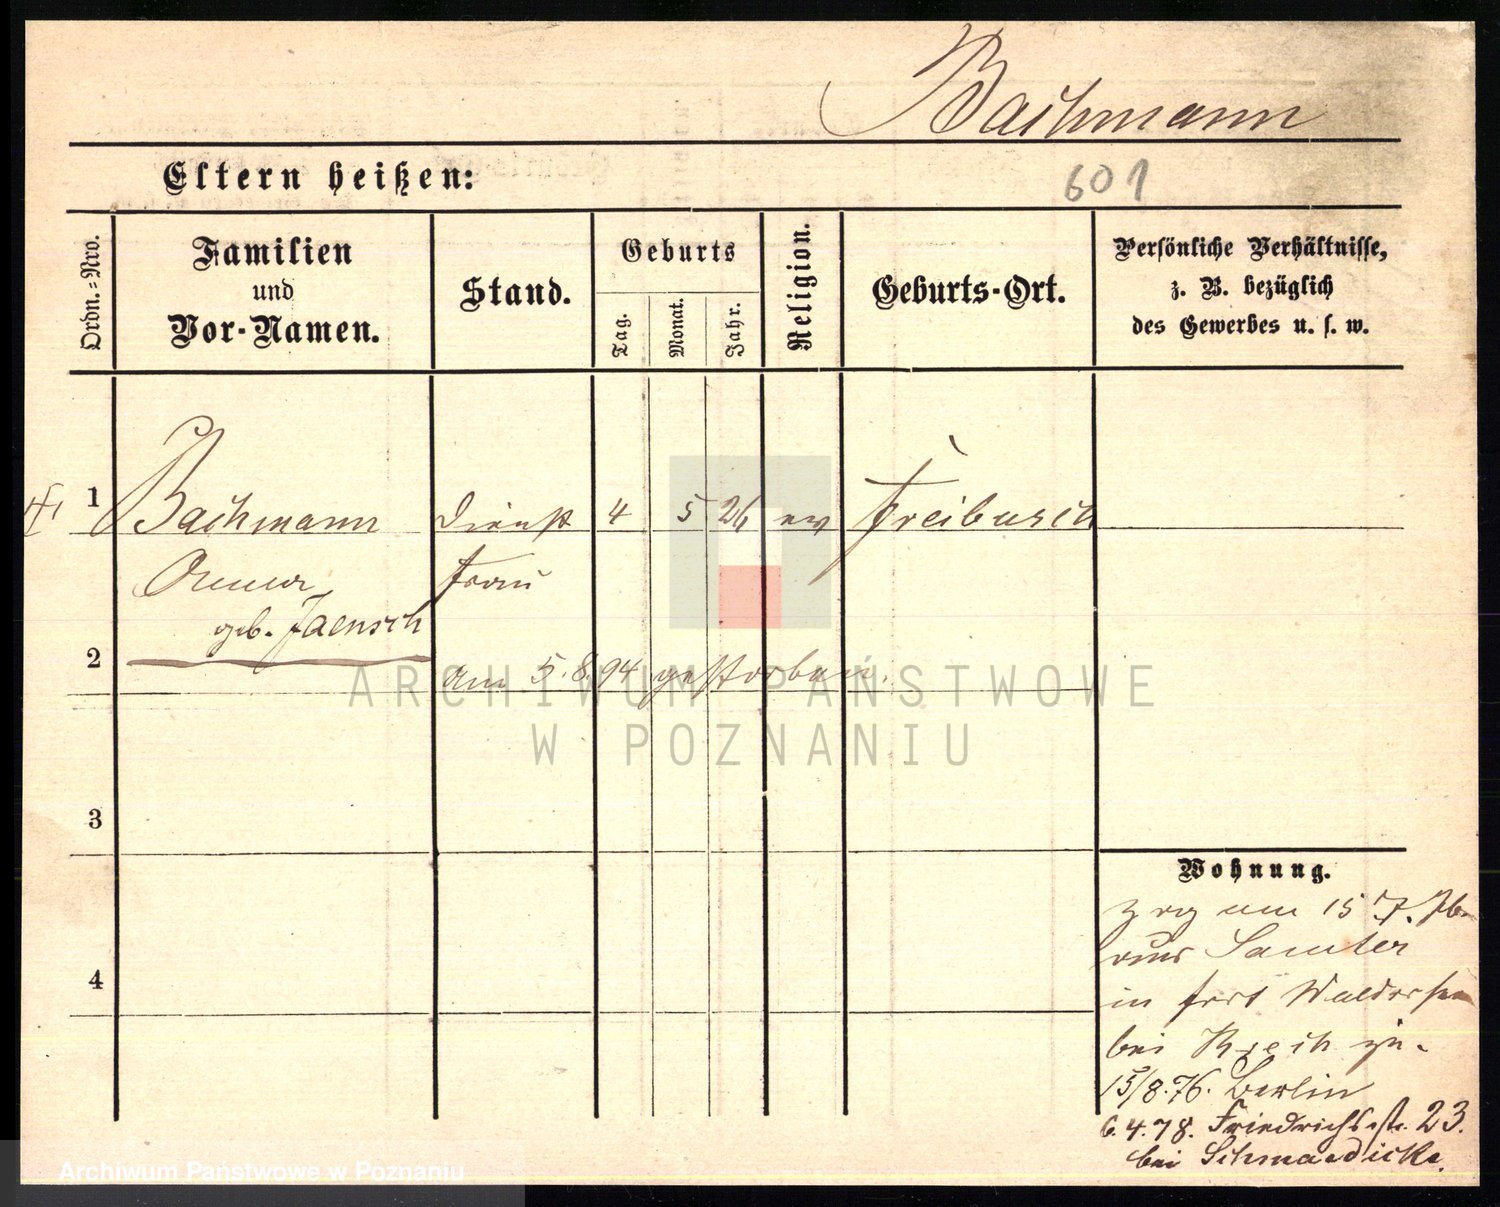 Bachmann
Eltern heißen:
601
Ordn.=Nro.
Familien
und
Vor-Namen.
Stand.
Geburts
Tag.
Monat.
Jahr.
Religion.
Geburts-Ort.
Persönliche Verhältnisse,
z. B. bezüglich
des Gewerbes u. s. w.
1
Bachmann
Dienst
4
5
26
ev
Freibusch
Anna
frau
geb. Jaensch
2
am 5.8.94 gestorben.
ARCHIWUM PAŃSTWOWE
W POZNANIU
3
4
Wohnung.
zog am 15 7.
aus Samter
in fort Waldersee
bei zu.
15/8.76. Berlin
6.4.78. Friedrichsstr. 23.
bei Schmaedicke.
Archiwum Państwowe w Poznaniu